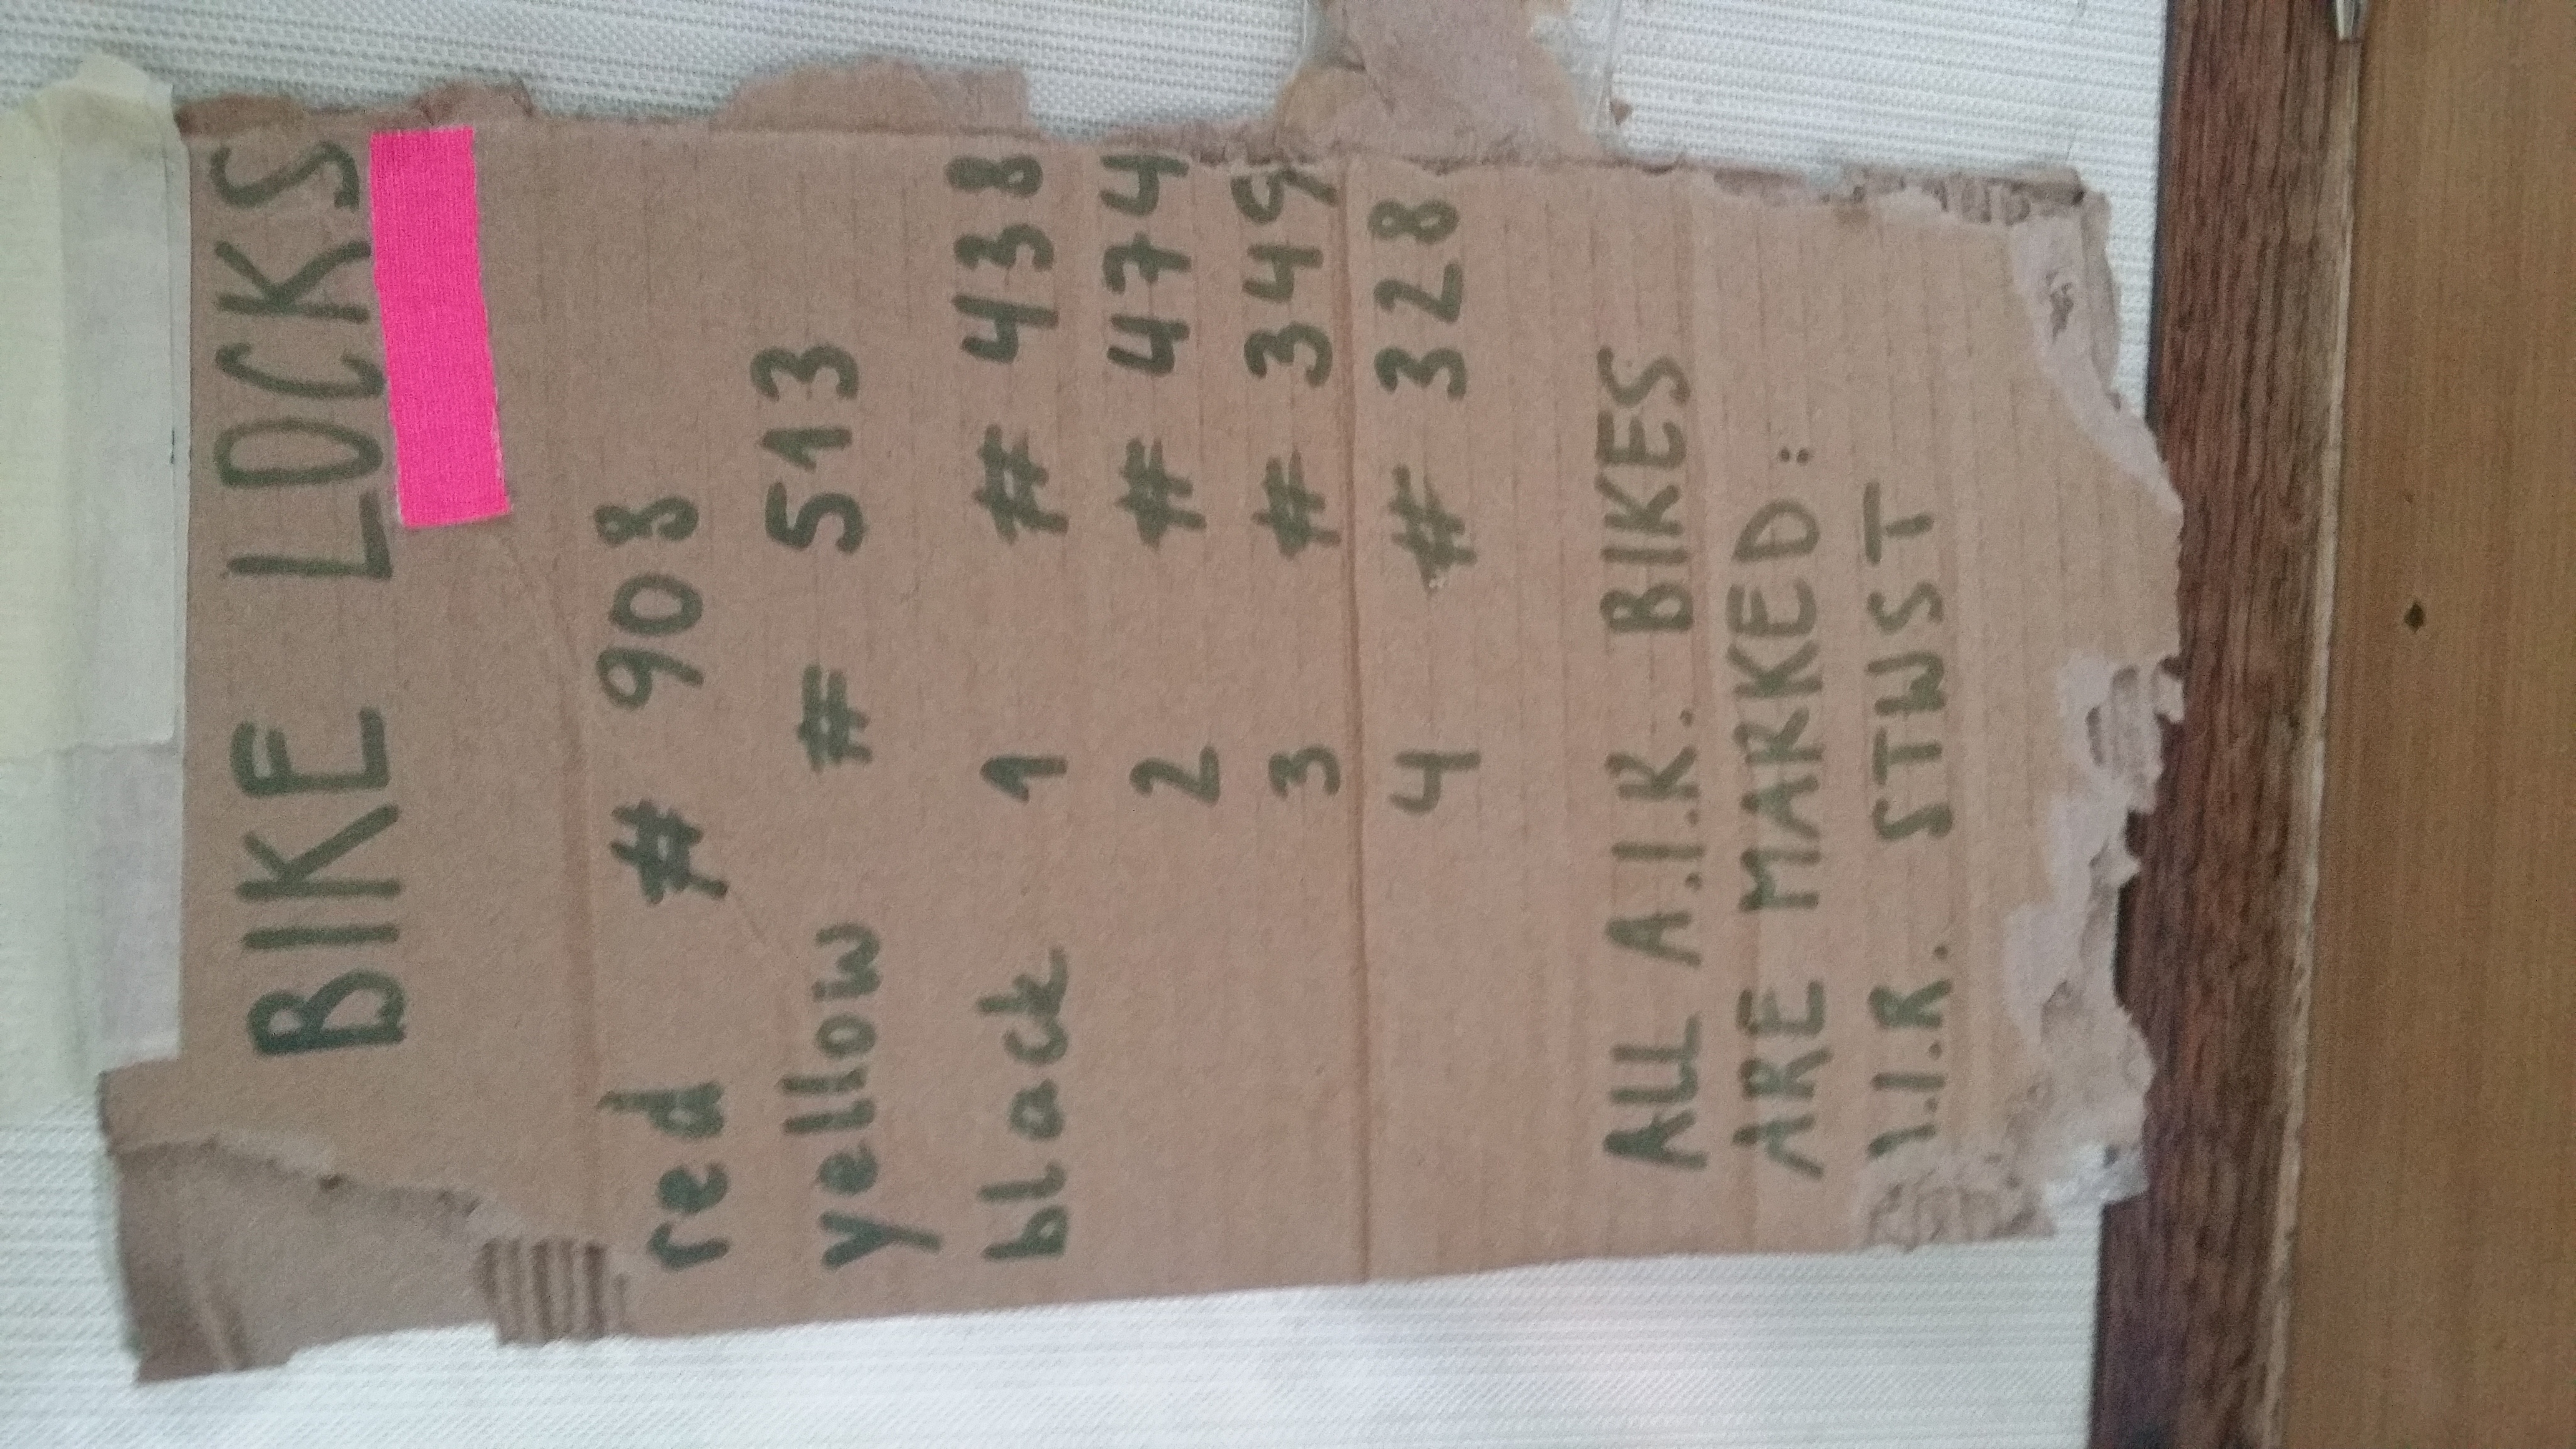 BIKE LOCKS
red # 908
yellow # 513
black 1 # 438
2 # 474
3 # 349
4 # 328
ALL A.I.R. BIKES
ARE MARKED:
A.I.R. STWST